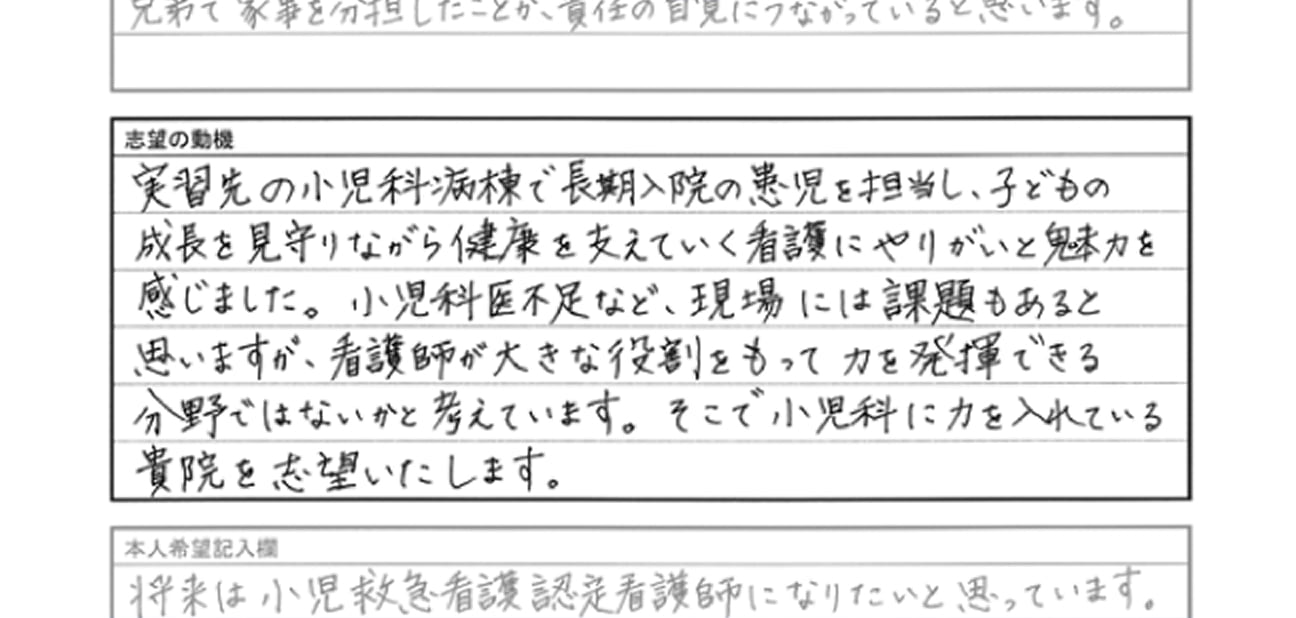 兄弟で家事を分担したことが、責任の自覚につながっていると思います。
志望の動機
実習先の小児科病棟で長期入院の患児を担当し、子どもの
成長を見守りながら健康を支えていく看護にやりがいと魅力を
感じました。小児科医不足など、現場には課題もあると
思いますが、看護師が大きな役割をもって力を発揮できる
分野ではないかと考えています。そこで小児科に力を入れている
貴院を志望いたします。
本人希望記入欄
将来は小児救急看護認定看護師になりたいと思っています。